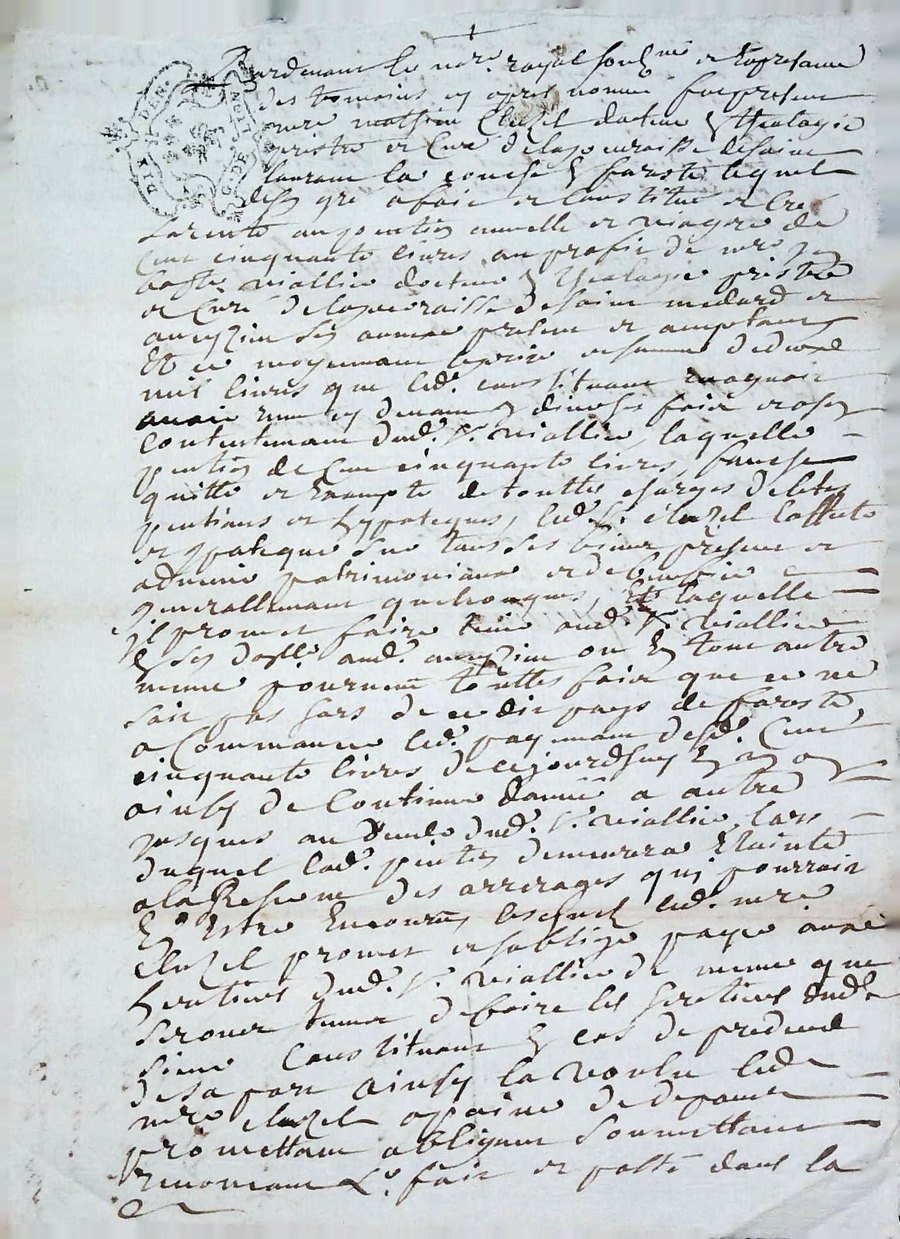 Pardevant le nore. royal soubsné et en presence
des tesmoins cy apres nommé fut present
mre mathieu Cluzel docteur en theologie
prestre et Curé de la parroisse de saint
laurent la conche en forests lequel
de son gré a fait et constitué et créé
la rente ou pention annuelle et viagere de
Cent cinquante livres, au profit de mre jean
baptte. viallier docteur en theologie prestre
et Curé de la parroisse de saint medard et
aveyzieu son annexe present et acceptant
Et ce moyennant le prix et somme de deux
mil livres que led. constituant
avoir receu cy devant en diverses fois et a son
contentement dud. sr. viallier, laquelle
pention de Cent cinquante livres, franche
quitte et exempte de toutte charges debtes
pentions et hypoteques, led. sr. cluzel l'affecte
et ypoteque sur tous ses biens present et
advenir patrimoniaux et de benefice
generallement quelconques, et laquelle
il promet faire tenir aud. sr. viallier
en son domlle. aud. aveyzieu ou en tout autre
meme pourveu touttes fois que ce ne
soit pas hors de ce dit pays de forests,
a Commancé led. payement desd. Cent
cinquante livres de cejourdhuy en un an
ainsy de continuer d'année a autre
jusques au deceds dud. sr. viallier, lors
duquel lad. pention demeurera Etainte
a la Reserve des arrerages qui pourroit
En Estre Encourus lesquels led. mre
Cluzel promet et s'oblige payer aux
heritiers dud. sr. viallier de meme que
seront tenus de faire les heritiers dud.
sieur Constituant en cas de predeceds
de sa part ainsy la voulu led.
mre cluzel a paine de depans
promettant obligeant soumettant
renonceant &c. fait et passé dans la